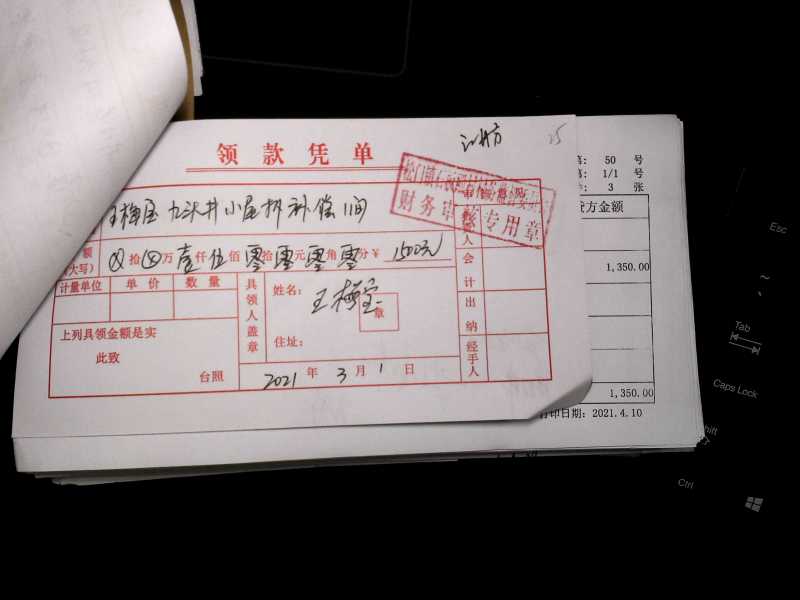 领款凭单
25
王梅宝 九头井小屋拆补偿 1间
额
(大写)
拾 万 壹仟伍佰零拾零元零角零分 ¥ 1500元
财务审核专用章
计量单位 单价 数量
具领人盖章
姓名：王梅宝
章
住址：
上列具领金额是实
此致
台照
2021 年 3 月 1 日
人
会计
出纳
经手人
第： 50 号
： 1/1 号
： 3 张
贷方金额
1,350.00
1,350.00
打印日期：2021.4.10
Esc
~
Tab
Caps Lock
Shift
Ctrl